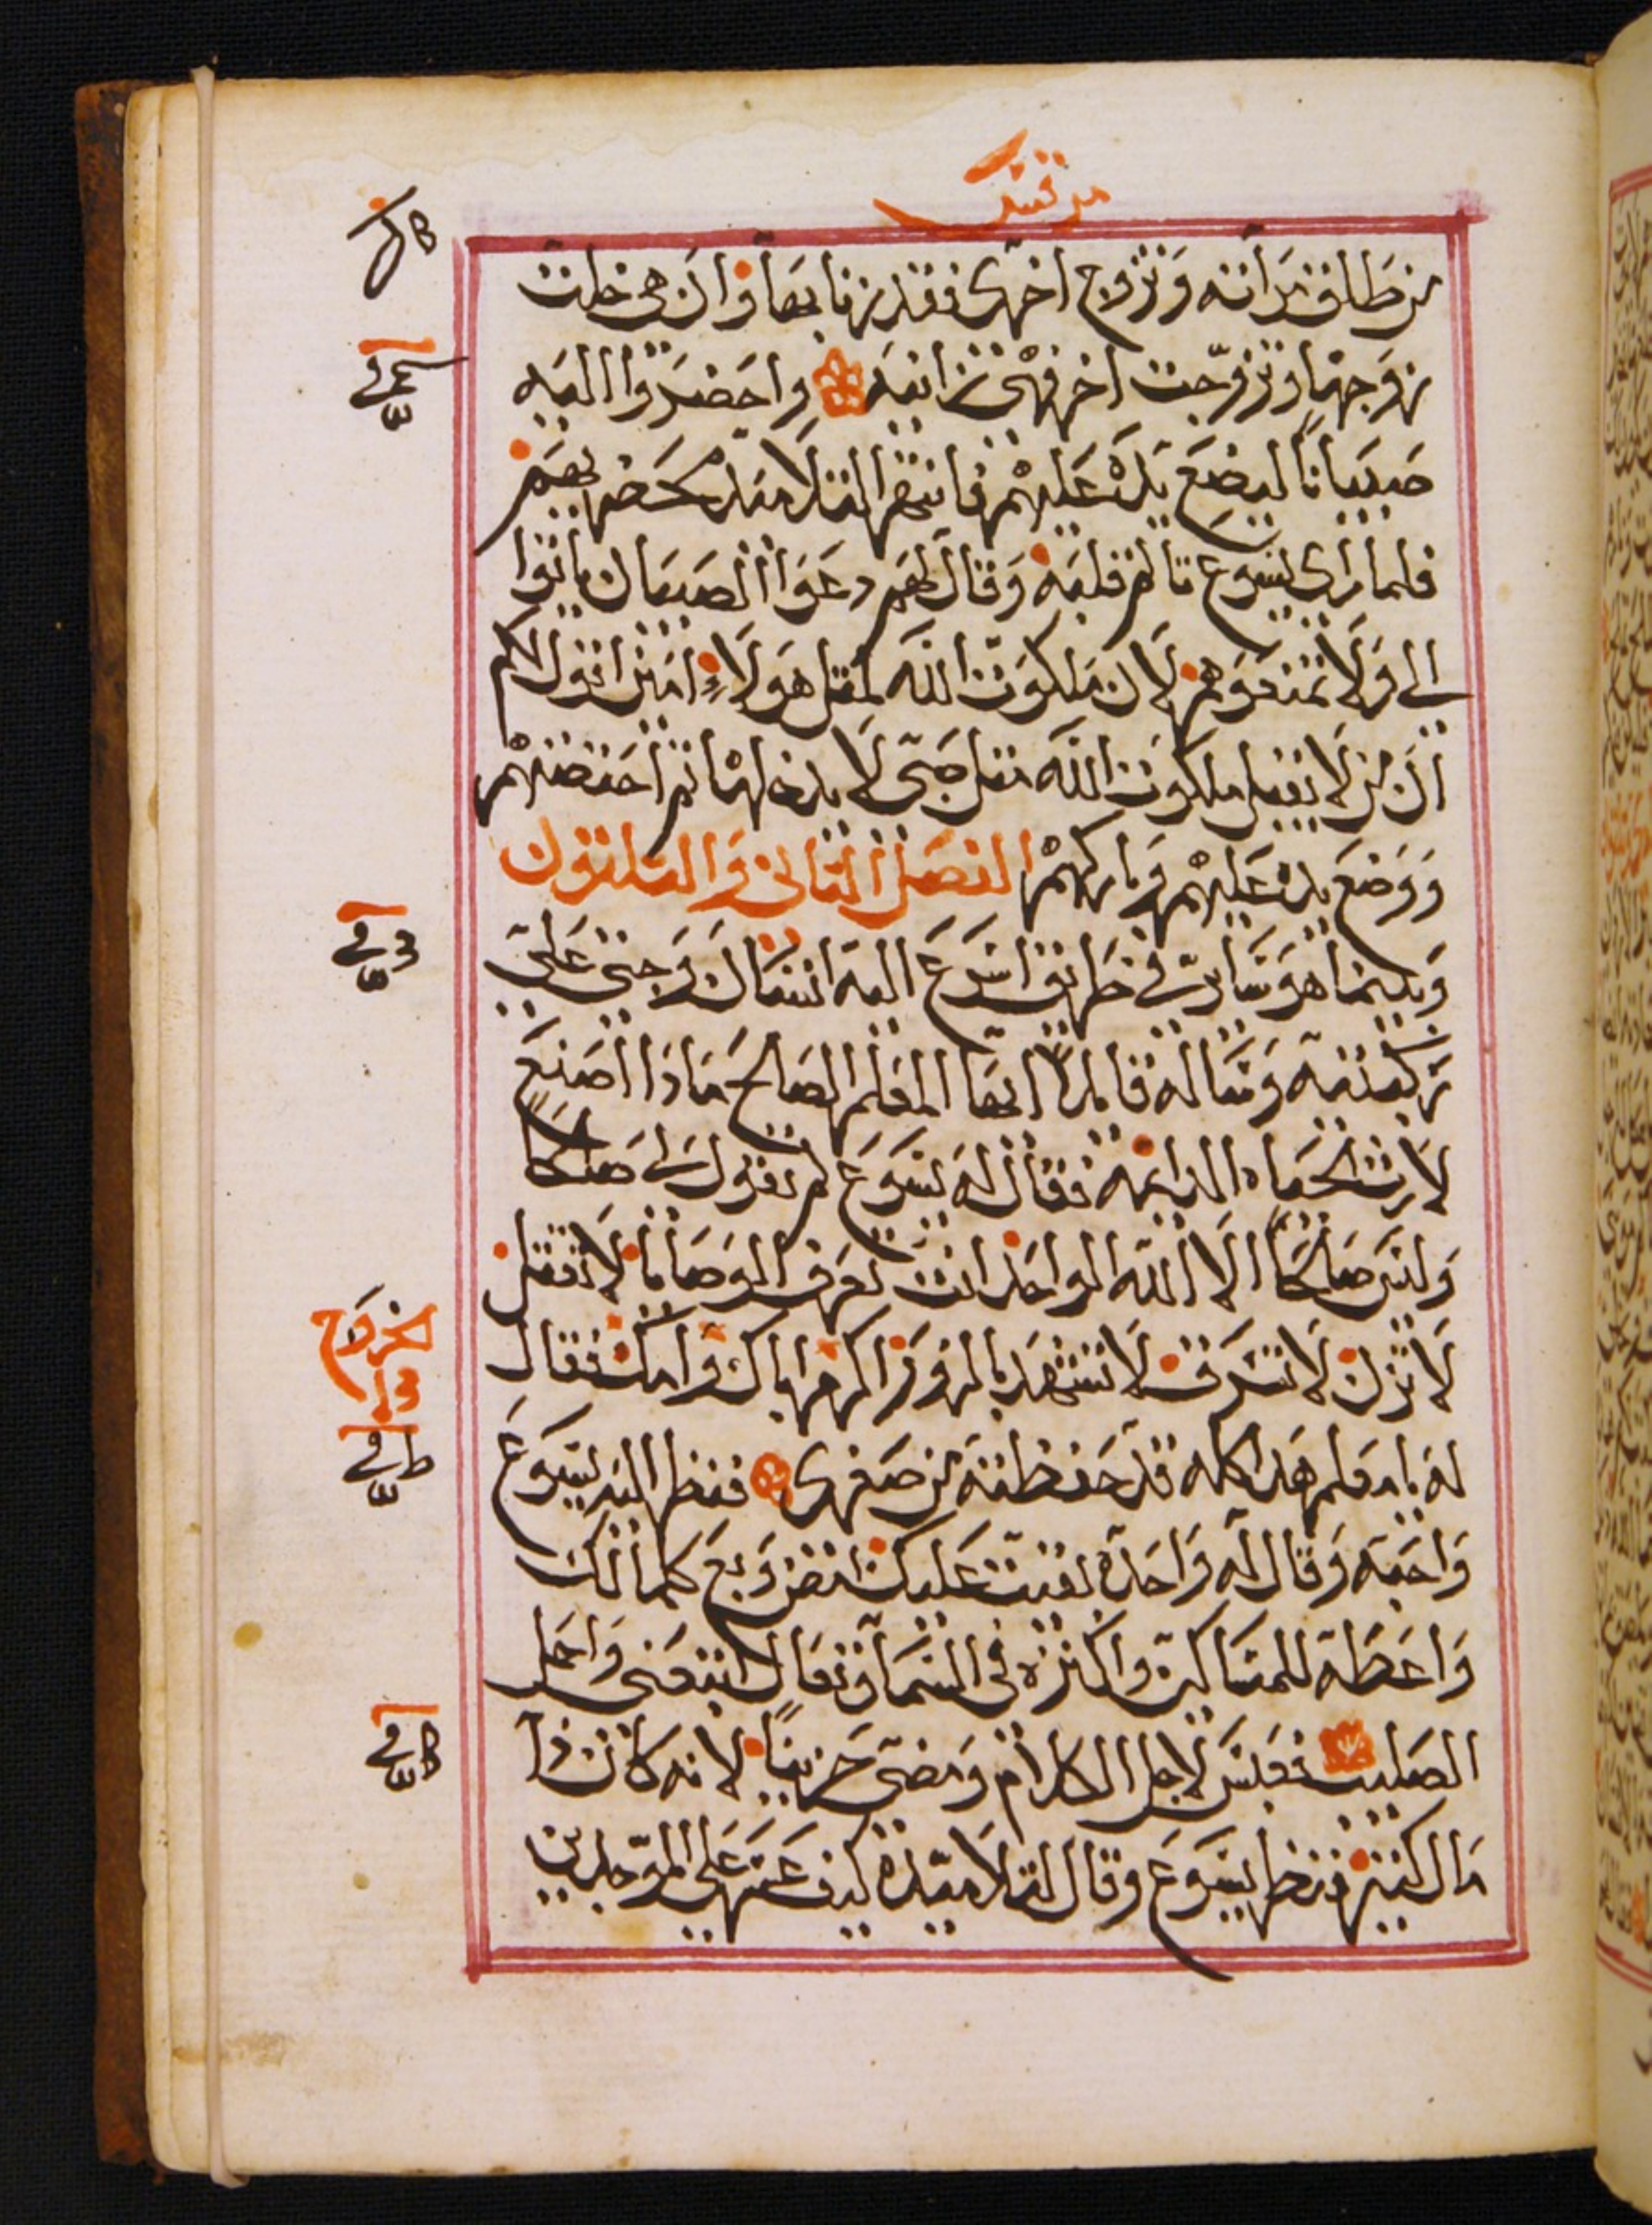 مرقس
من طلق مراته وتزوج اخرى فقد زنا بها وان هي خلت
زوجها وتزوجت اخر فهى زانيه واحضروا اليه
صبيانًا ليضع يده عليهم فانتهر التلاميد محضريهم
فلما راى يسوع تالم قلبه وقال لهم دعوا الصبيان ياتوا
الي ولا تمنعوهم لان ملكوت الله لمثل هولاء امين اقول لكم
ان من لا يقبل ملكوت الله مثل صبى لا يدخلها ثم احتضنهم
ووضع يده عليهم وباركهم الفصل الثاني والثلثون
وبينما هو سائر في طريق اسرع اليه انسان وجثى على
ركبتيه وساله قايلاً ايها المعلم الصالح ماذا اصنع
لارث الحياه الدايمه فقال له يسوع لم تقول لي صالحًا
وليس صالحًا الا الله الواحد انت تعرف الوصايا لا تقتل
لا تزن لا تسرق لا تشهد بالزور اكرم اباك وامك فقال
له يا معلم هدا كله قد حفظته من صغرى فنظر اليه يسوع
واحبه وقال له واحدة بقيت عليك امض وبع كلما لك
واعطه للمساكين واكنزه في السما وتعال اتبعنى واحمل
الصليب فعبس لاجل الكلام ومضى حزينًا لانه كان دا
مال كثير فنظر يسوع وقال لتلاميده كيف عسر على الموجدين
الخروج